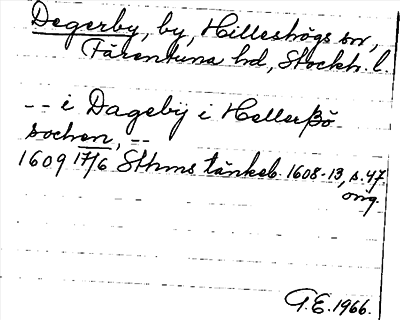 Degerby, by, Hilleshögs sn,
Färentuna hd, Stockh. l.
-- i Dageby i Hellersö
sochen, --
1609 17/6 Sthms tänkeb. 1608-13, s. 47.
orig.
G.E. 1966.